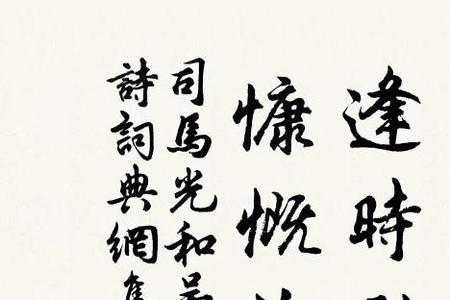 逢時
慷慨
司馬光和
詩詞典網